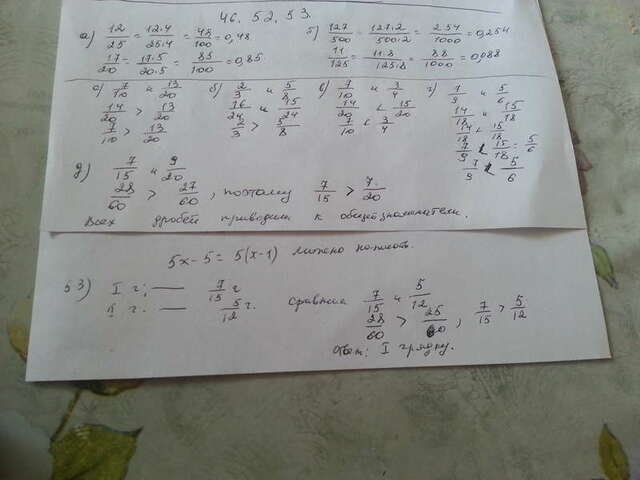 46. 52. 53.
а) 12/25 = 12·4/25·4 = 48/100 = 0,48
17/20 = 17·5/20·5 = 85/100 = 0,85
б) 127/500 = 127·2/500·2 = 254/1000 = 0,254
11/125 = 11·8/125·8 = 88/1000 = 0,088
а) 7/10 и 13/20
14/20 > 13/20
7/10 > 13/20
б) 2/3 и 5/8
16/24 и 15/24
2/3 > 5/8
в) 7/10 и 3/4
14/20 < 15/20
7/10 < 3/4
г) 7/9 и 5/6
14/18 и 15/18
14/18 < 15/18
7/9 < 15/18 = 5/6
7/9 < 5/6
д) 7/15 и 9/20
28/60 > 27/60, поэтому 7/15 > 7/20
Всех дробей приводим к общей знаменатели.
5x-5 = 5(x-1)
53) I г; — 7/15 г
II г. — 5/12 г.
сравним 7/15 и 5/12
28/60 > 25/60, 7/15 > 5/12
Ответ: I грядку.